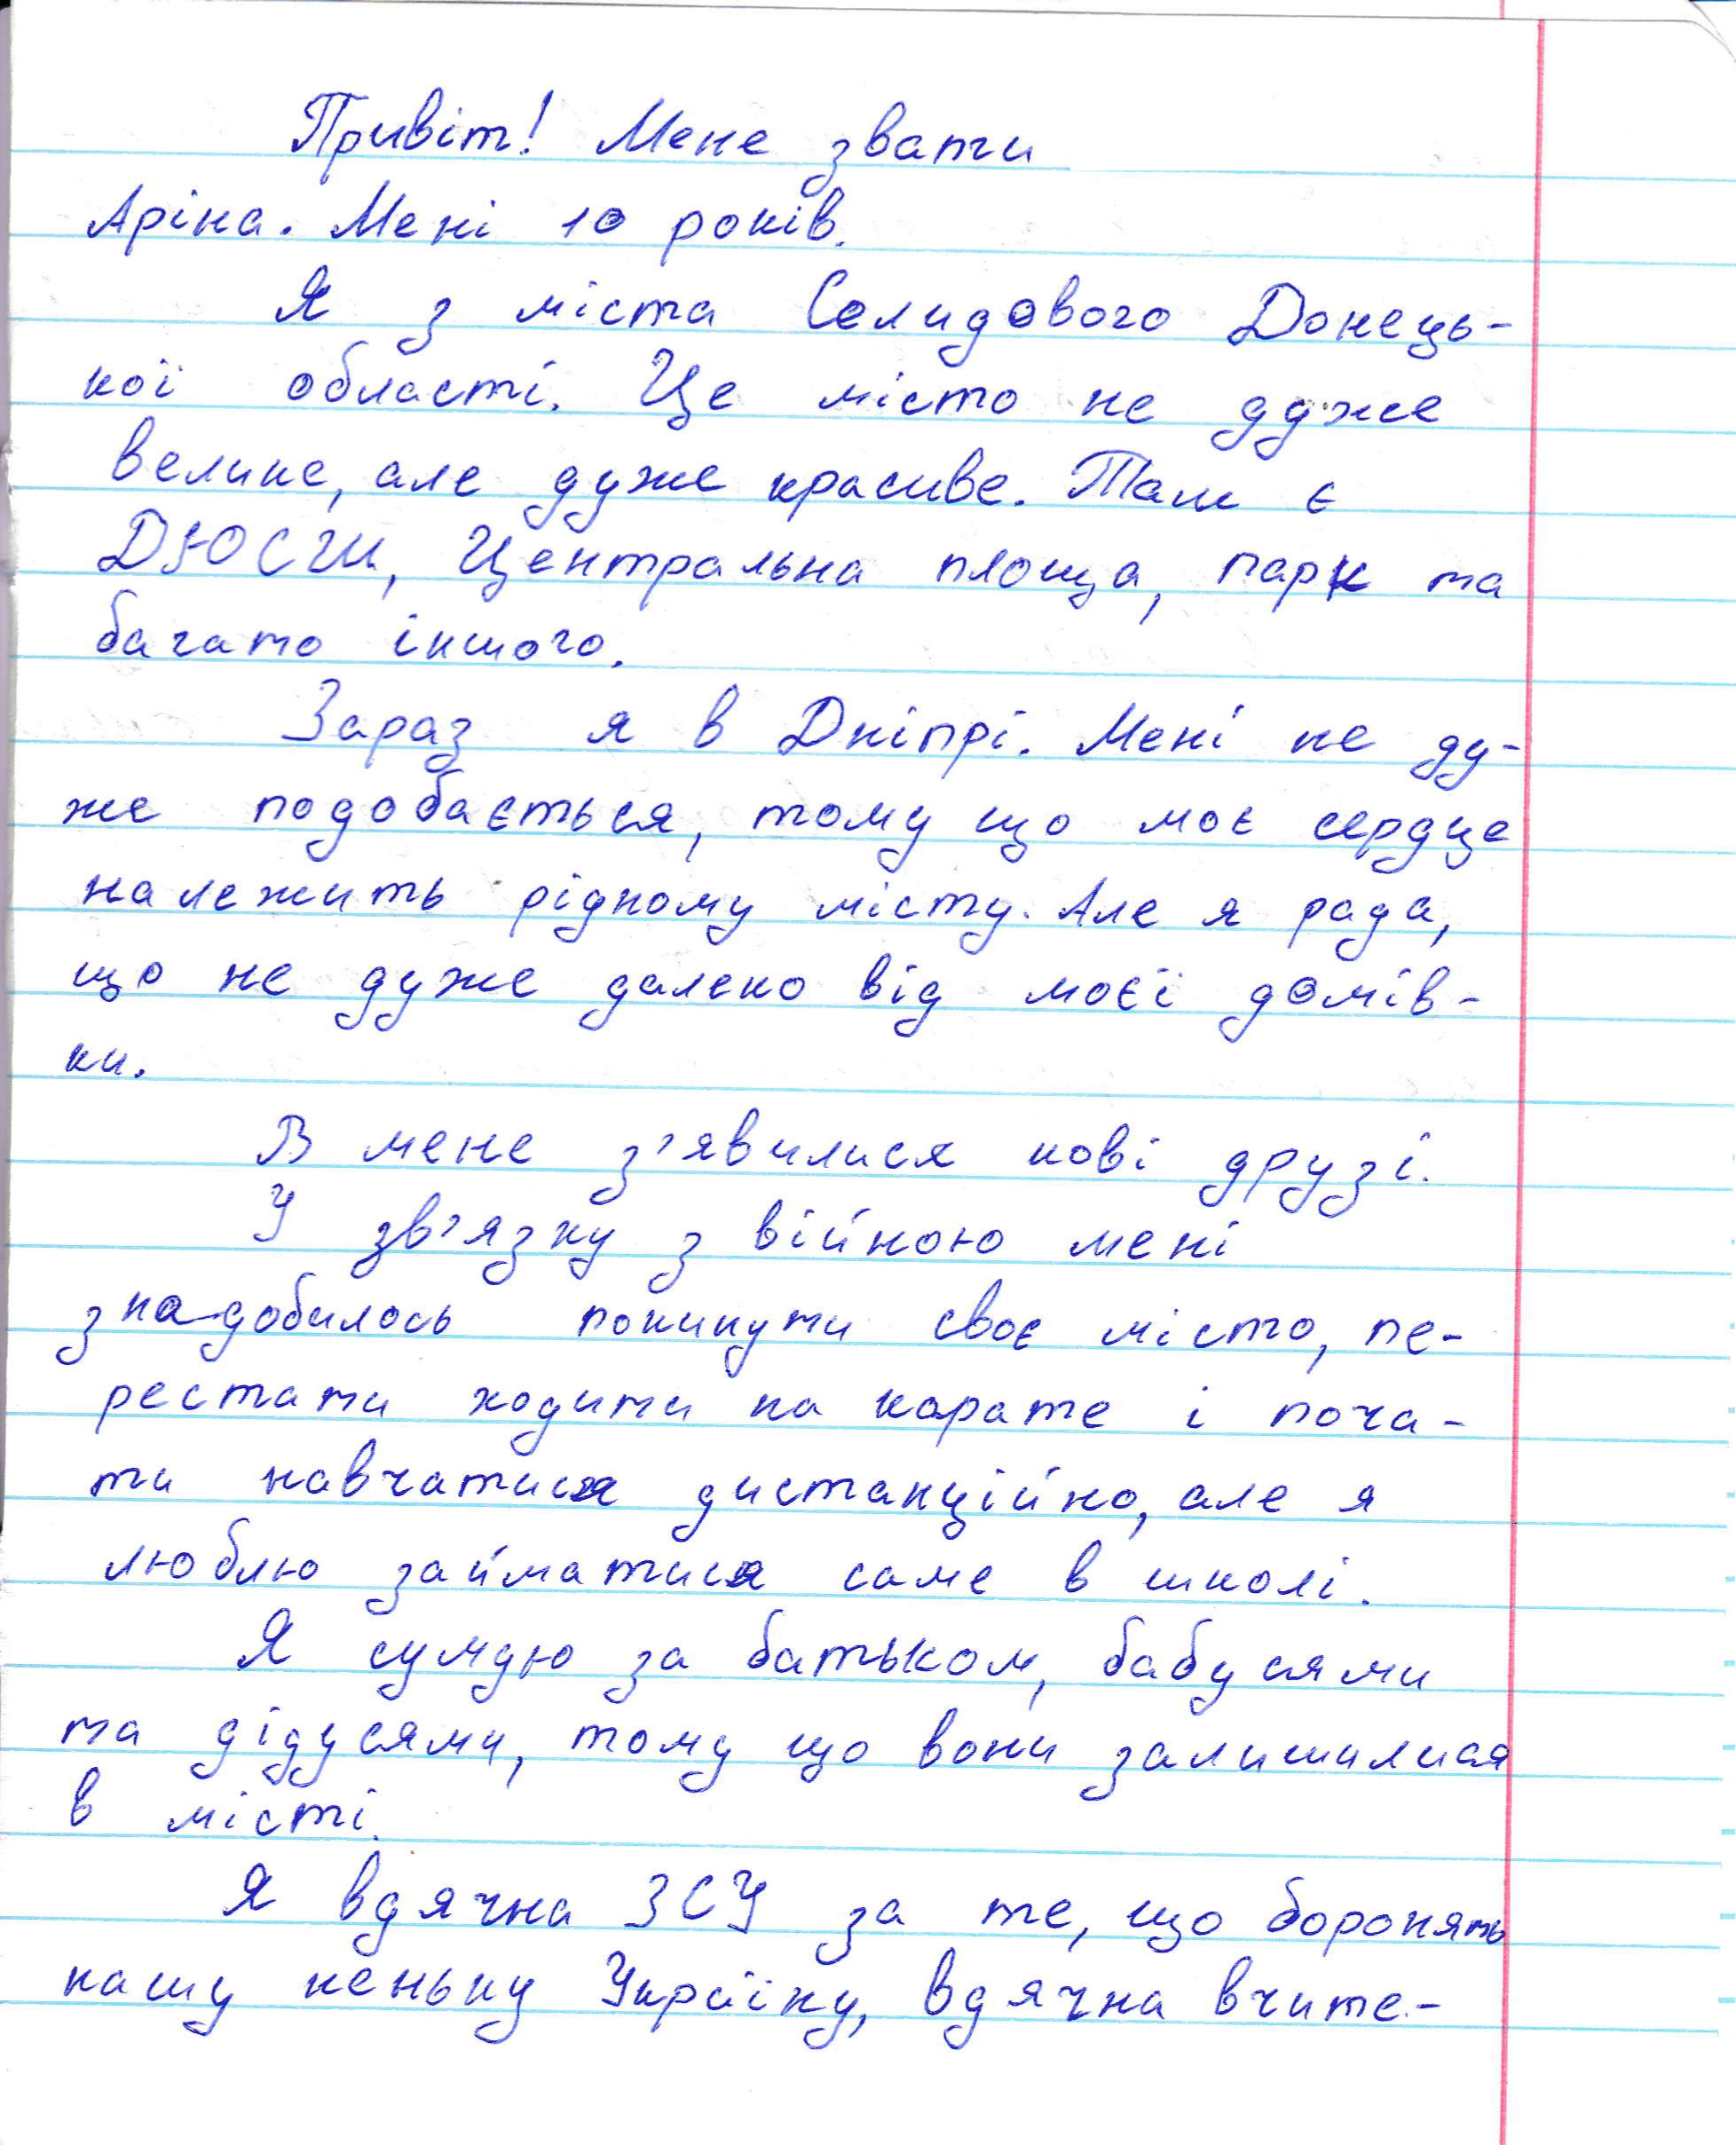 Привіт! Мене звати
Аріна. Мені 10 років.
Я з міста Селидового Донець-
кої області. Це місто не дуже
велике, але дуже красиве. Там є
ДЮСШ, Центральна площа, парк та
багато іншого.
Зараз я в Дніпрі. Мені не ду-
же подобається, тому що моє серце
належить рідному місту. Але я рада,
що не дуже далеко від моєї домів-
ки.
В мене з'явилися нові друзі.
У зв'язку з війною мені
знадобилось покинути своє місто, пе-
рестати ходити на карате і поча-
ти навчатися дистанційно, але я
люблю займатися саме в школі.
Я сумую за батьком, бабусями
та дідусями, тому що вони залишилися
в місті.
Я вдячна ЗСУ за те, що боронять
нашу неньку Україну, вдячна вчите-